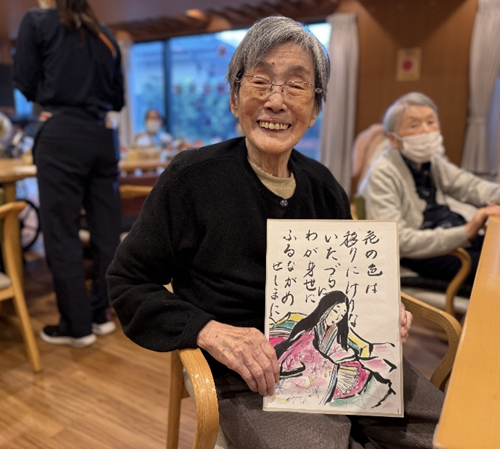 花の色は
移りにけりな
いたづらに
わが身世に
ふるながめ
せしまに